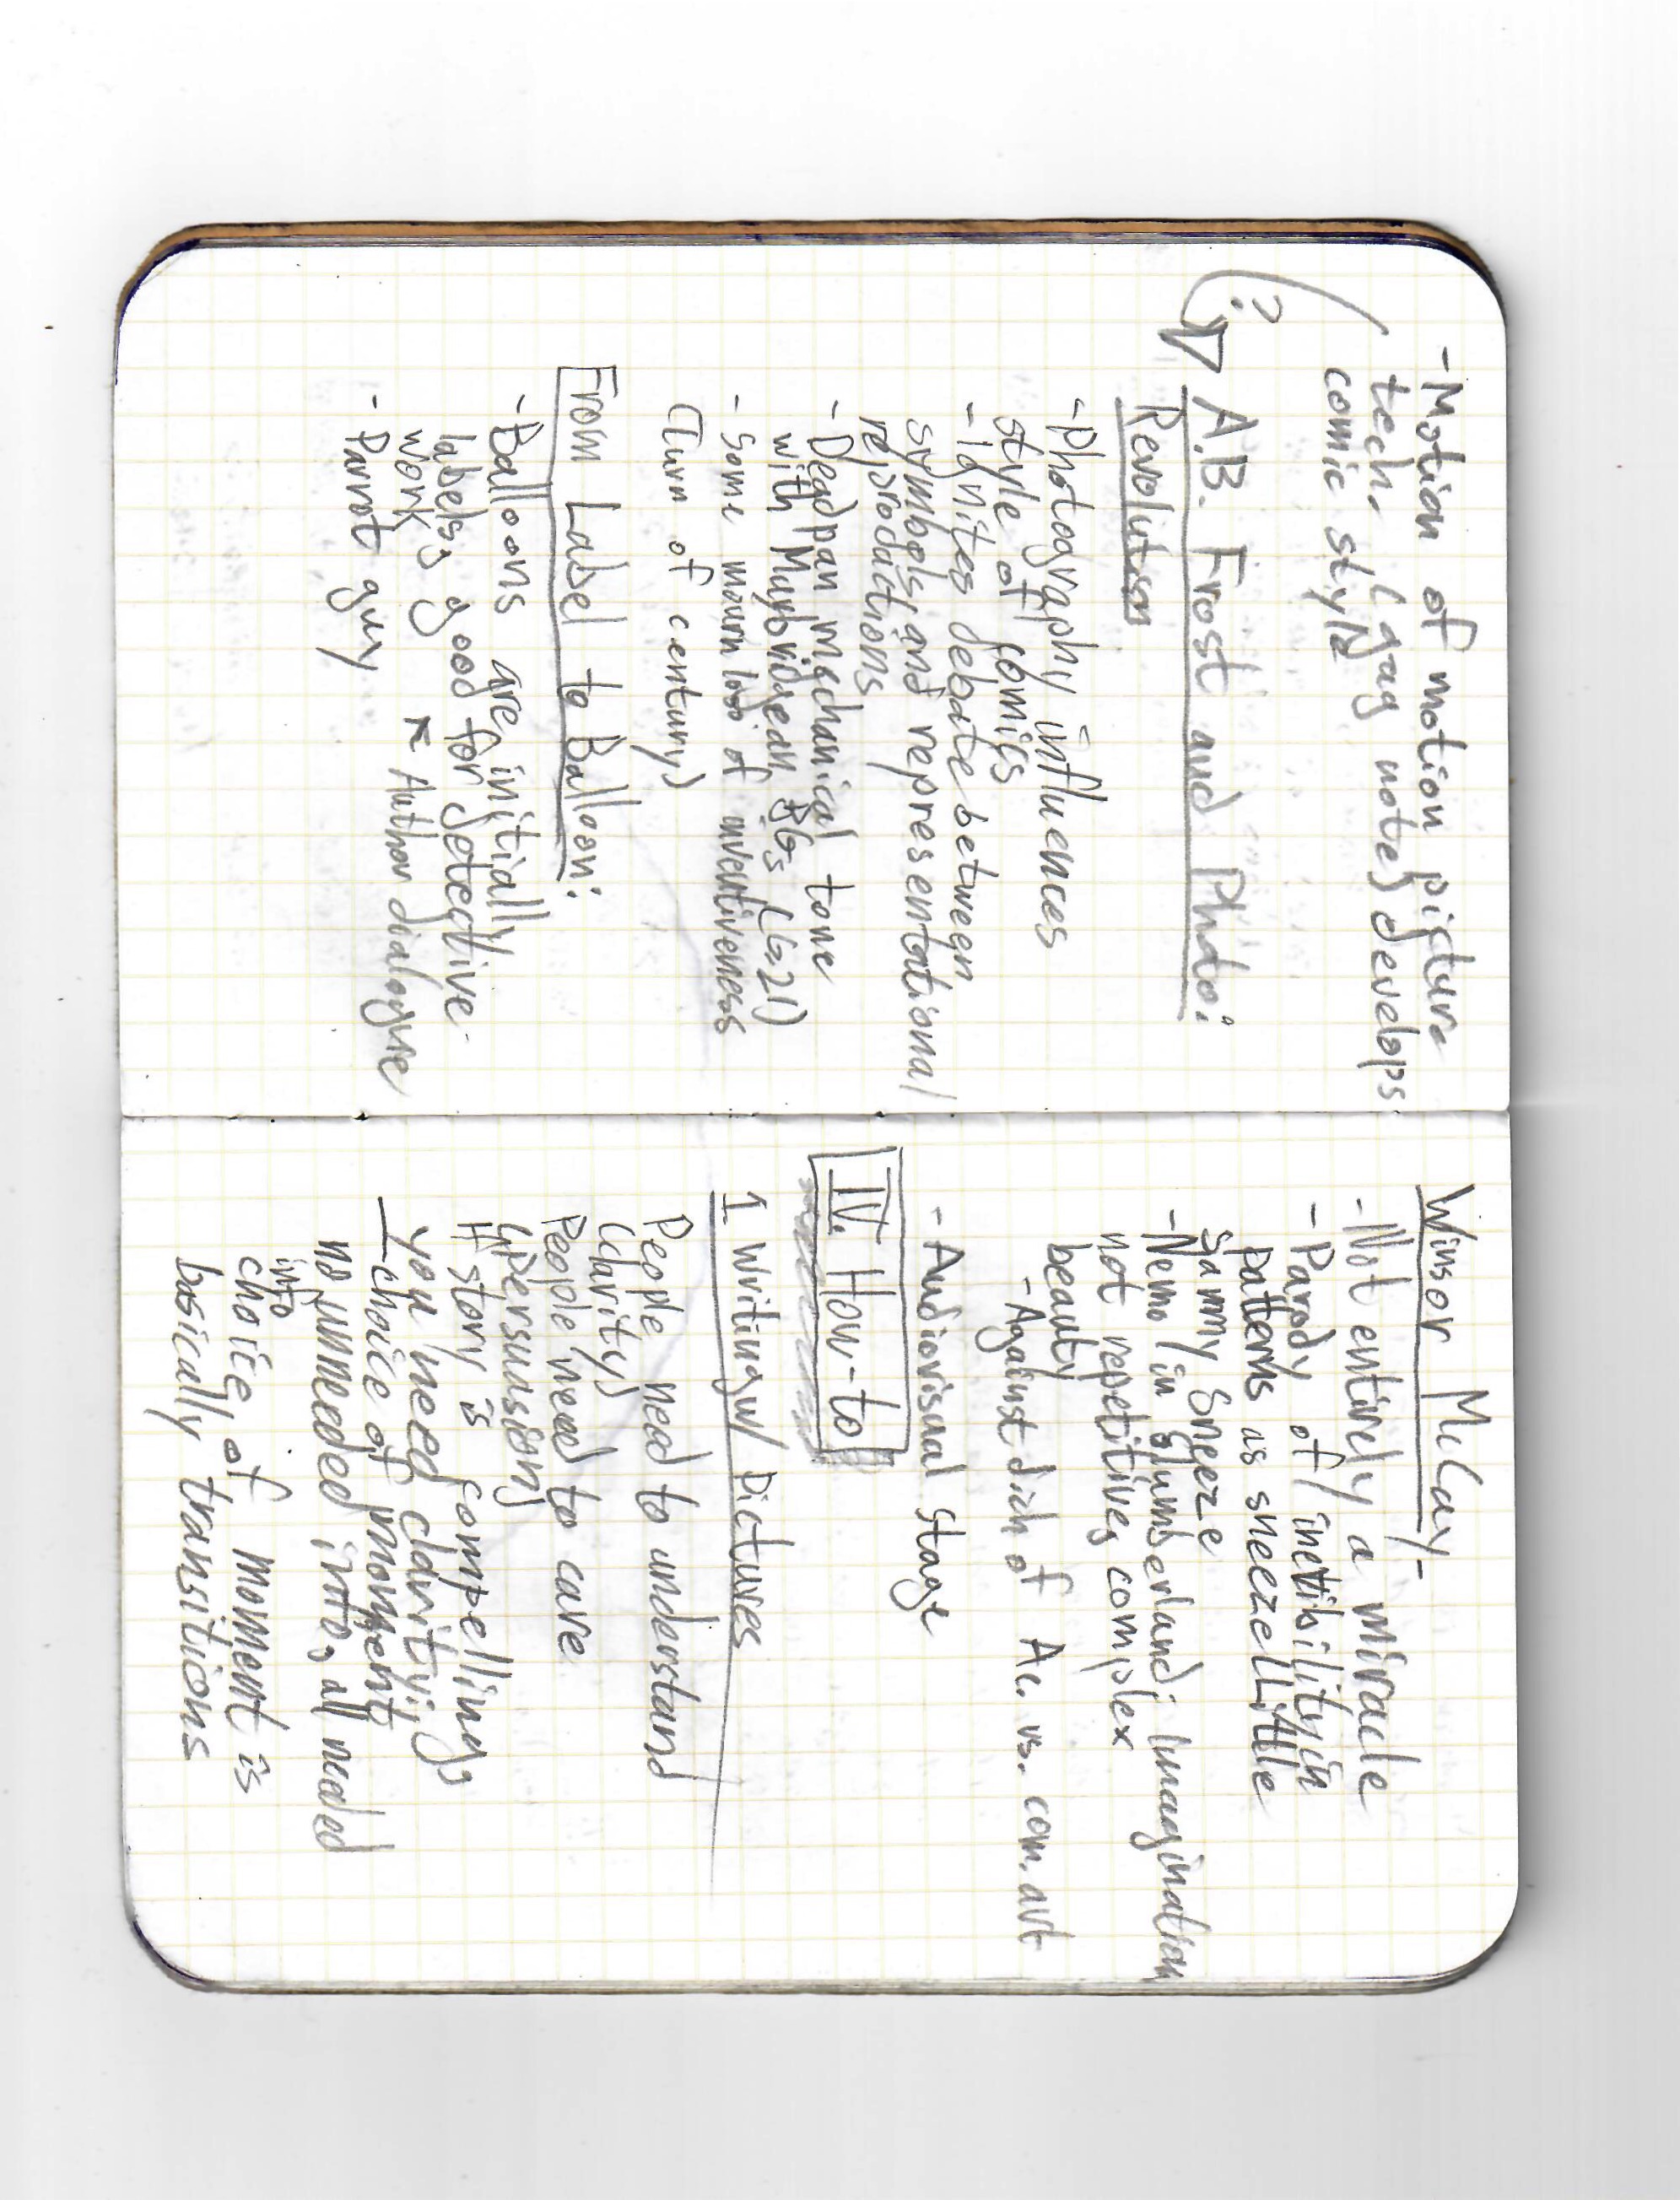 -Motion of motion picture
tech. (gag note) develops
comic style
?
A.B. Frost and Photo:
Revolution
-Photography influences
style of comics
-Ignites debate between
symbols and representational
reproductions
-Deadpan mechanical tone
with Muybridgean BGs (6.21)
-Some mourn loss of inventiveness
(Turn of century)
From Label to Balloon:
-Balloons are initially
labels, good for detective
work
Author dialogue
-Parrot guy
Winsor McCay
-Not entirely a miracle
-Parody of inevibility in
patterns as sneeze Little
Sammy Sneeze
-Nemo in Slumberland: Imagination
not repetitive, complex
beauty
-Against dich of Ac. vs. com. art
-Audiovisual Stage
IV. How-to
1 Writing w/ Pictures
People need to understand
(clarity)
People need to care
(persuasion)
If story is compelling,
you need clarity:
-choice of moment
no unneeded info, all needed
info
choice of moment is
basically transitions